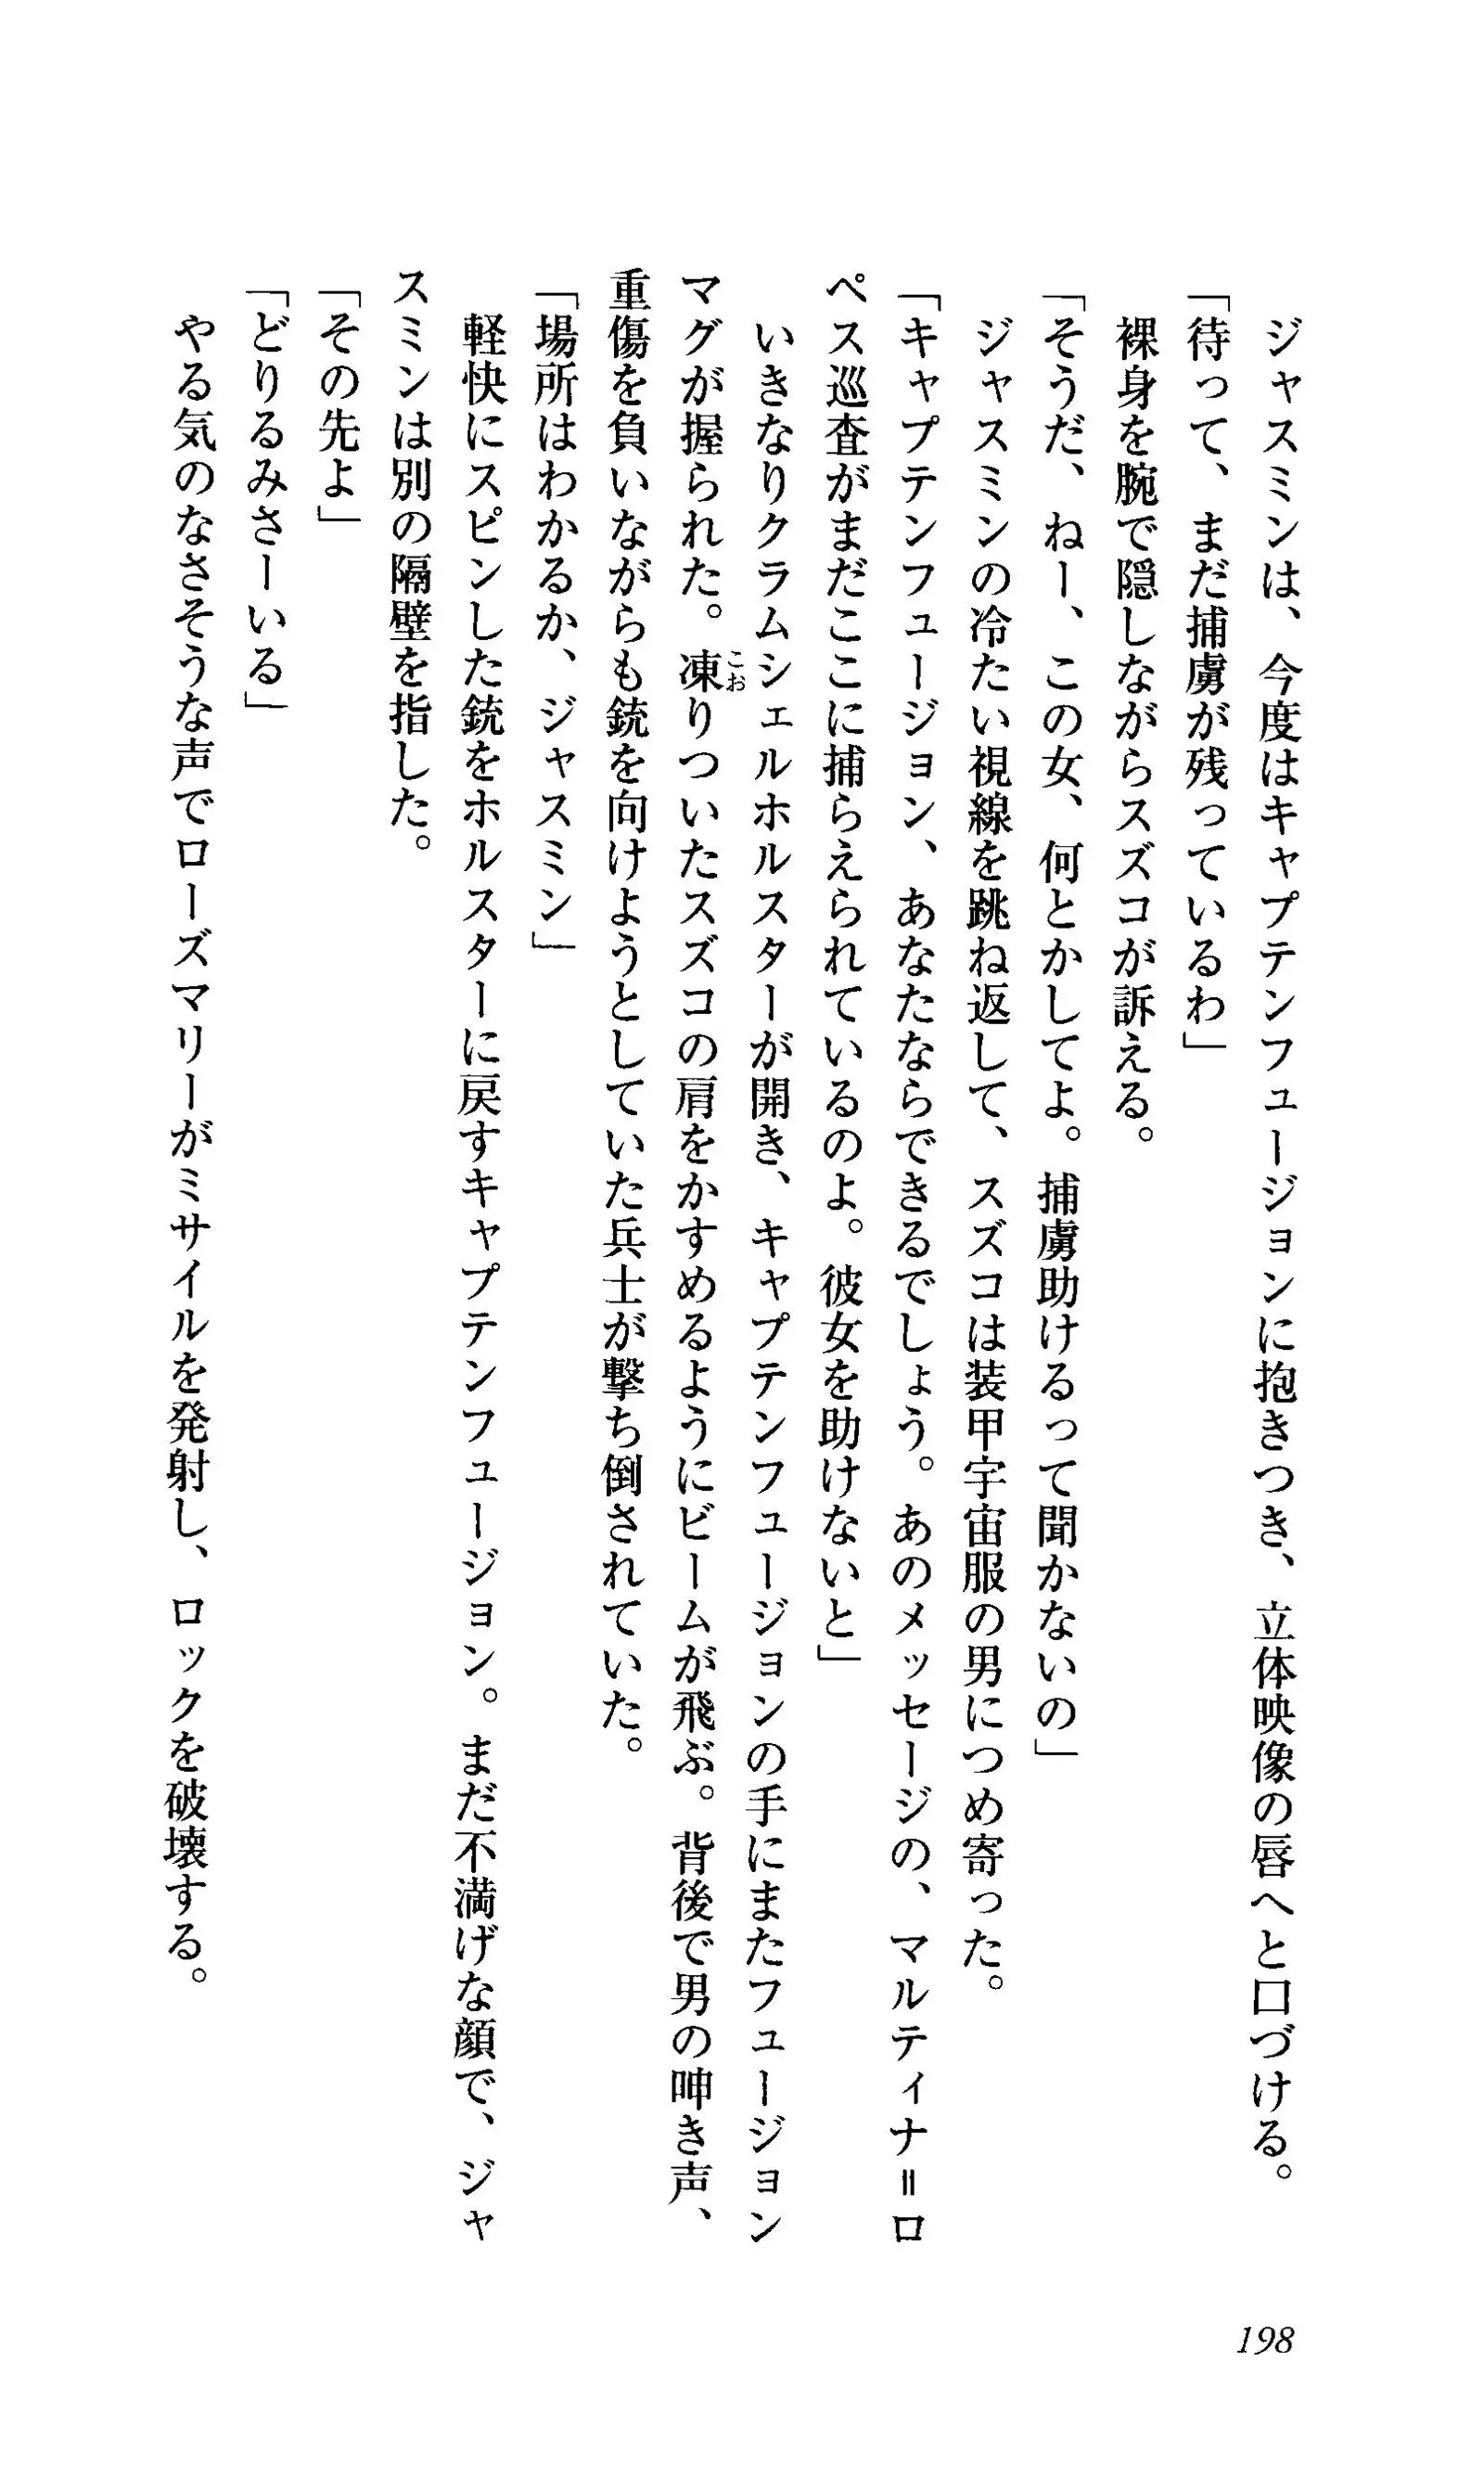 ジャスミンは、今度はキャプテンフュージョンに抱きつき、立体映像の唇へと口づける。
「待って、まだ捕虜が残っているわ」
裸身を腕で隠しながらスズコが訴える。
「そうだ、ねー、この女、何とかしてよ。捕虜助けるって聞かないの」
ジャスミンの冷たい視線を跳ね返して、スズコは装甲宇宙服の男につめ寄った。
「キャプテンフュージョン、あなたならできるでしょう。あのメッセージの、マルティナ＝ロ
ペス巡査がまだここに捕らえられているのよ。彼女を助けないと」
いきなりクラムシェルホルスターが開き、キャプテンフュージョンの手にまたフュージョン
マグが握られた。凍りついたスズコの肩をかすめるようにビームが飛ぶ。背後で男の呻き声、
こお
重傷を負いながらも銃を向けようとしていた兵士が撃ち倒されていた。
「場所はわかるか、ジャスミン」
軽快にスピンした銃をホルスターに戻すキャプテンフュージョン。まだ不満げな顔で、ジャ
スミンは別の隔壁を指した。
「その先よ」
「どりるみさーいる」
やる気のなさそうな声でローズマリーがミサイルを発射し、ロックを破壊する。
198